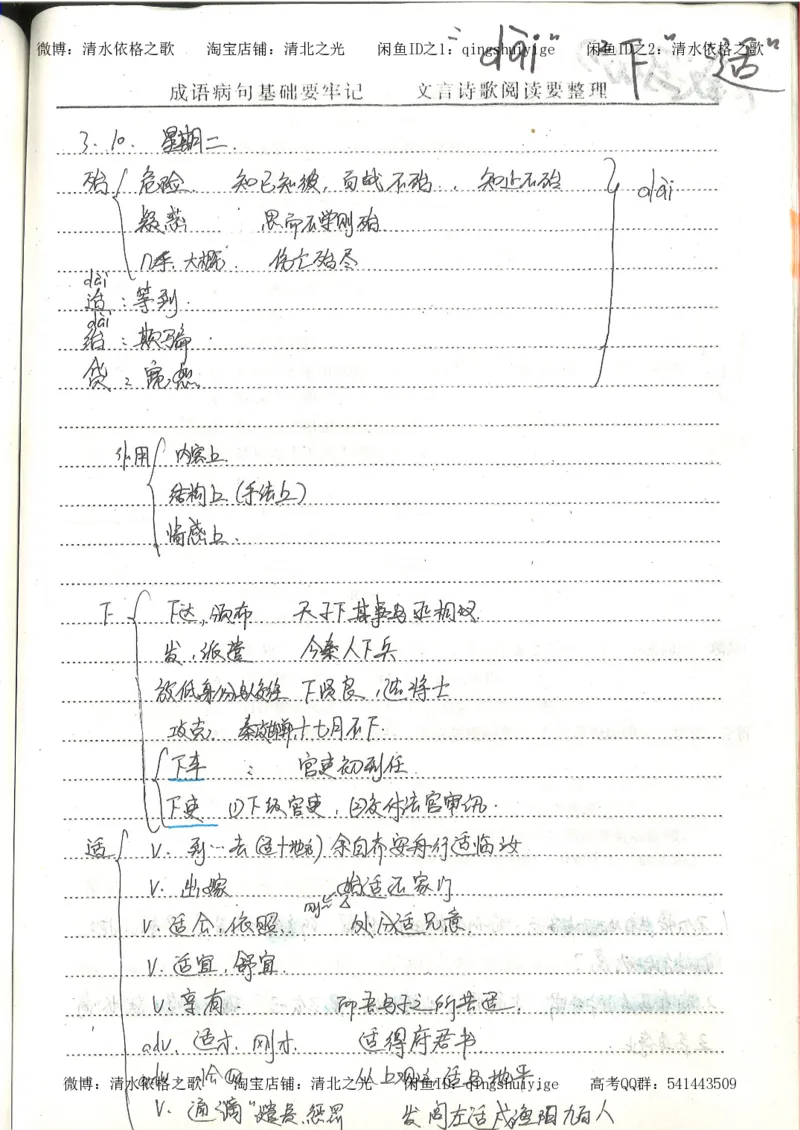 微博：清水依格之歌 淘宝店铺：清北之光 闲鱼ID之1：qingshuiyige 闲鱼ID之2：清水依格之歌
"dài" "下" "适"
成语病句基础要牢记 文言诗歌阅读要整理
3.10. 星期二.
殆 危险. 知己知彼，百战不殆. 知止不殆 dài
疑惑 思而不学则殆.
几乎.大概. 伤亡殆尽
dài
迨：等到.
dài
绐：欺骗.
贷：宽恕.
作用 内容上
结构上(手法上)
情感上.
下 下达，颁布 天子下其事与丞相议
发，派遣 今秦人下兵
放低身份以交往 下贤良，
攻克. 十七月不下.
下车： 官吏初到任.
下吏 ①下级官吏，②交付法官审讯.
适 v. 到…去(适+地名) 余自齐安舟行适临汝
v. 出嫁 始适还家门
v. 适合，依照. 处分适兄意.
v. 适宜，舒宜.
v. 享有. 而吾与子之所共适.
adv. 适才，刚才. 适得府君书
adv. 恰好 从上观之适与地平
微博：清水依格之歌 淘宝店铺：清北之光 闲鱼ID：qingshuiyige 高考QQ群：541443509
v. 通"谪" 惩罚 发闾左适戍渔阳九百人